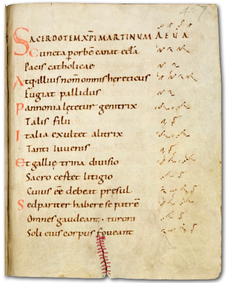 SACERDOTEM XPI MARTINUM AEUIA
Cuncta p orbē canat eccla
Pacis catholicae
Atq illius nom omnis hereticus
Fugiat pallidus
Pannonia letetur genitrix
Talis filii
Italia exultet altrix
Tanti iuuenis
Et gallię trina diuisio
Sacro certet litigio
Cuius eē debeat presul
Sed pariter habere se patrē
Omnes gaudeant. turoni
Soli eius corpus foueant